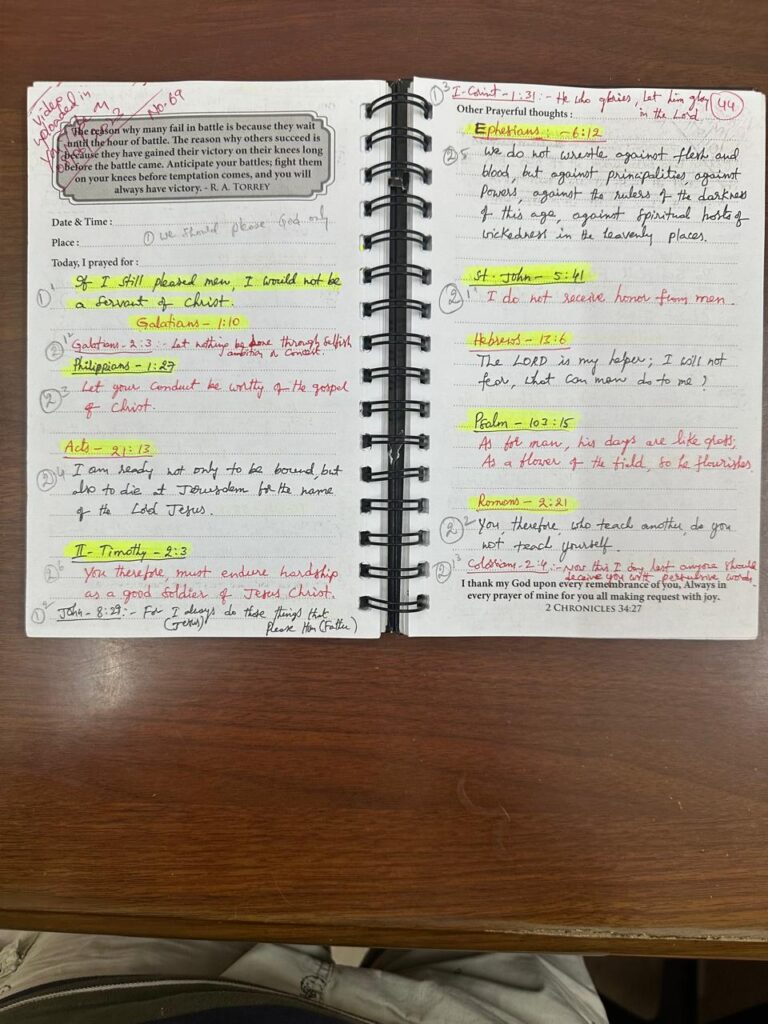 Video
uploaded in
No. 69
The reason why many fail in battle is because they wait
until the hour of battle. The reason why others succeed is
because they have gained their victory on their knees long
before the battle came. Anticipate your battles; fight them
on your knees before temptation comes, and you will
always have victory. - R. A. TORREY
Date & Time :
Place : ① we should please God only
Today, I prayed for :
① 1 If I still pleased men, I would not be
a servant of Christ.
Galatians - 1:10
② 12 Galatians - 2:3 :- Let nothing be done through selfish
ambition or conceit.
Philippians - 1:27
② 3 Let your conduct be worthy of the gospel
of Christ.
Acts - 21:13
② 4 I am ready not only to be bound, but
also to die at Jerusalem for the name
of the Lord Jesus.
II - Timothy - 2:3
② 6 You therefore, must endure hardship
as a good soldier of Jesus Christ.
① 2 John - 8:29 :- For I always do those things that
(Jesus) please Him (Father)
① 3 I - Corint - 1:31 :- He who glories, let him glory
in the Lord
44
Other Prayerful thoughts :
Ephesians :- 6:12
② 5 we do not wrestle against flesh and
blood, but against principalities, against
Powers, against the rulers of the darkness
of this age, against spiritual hosts of
wickedness in the heavenly places.
St. John - 5:41
② 1 I do not receive honor from men
Hebrews - 13:6
The LORD is my helper; I will not
fear, what can man do to me?
Psalm - 103:15
As for man, his days are like grass;
As a flower of the field, so he flourishes.
Romans - 2:21
② 2 You therefore, who teach another, do you
not teach yourself.
② 13 Colossian - 2:4 :- now this I say lest anyone should
deceive you with persuasive words.
I thank my God upon every remembrance of you, Always in
every prayer of mine for you all making request with joy.
2 CHRONICLES 34:27